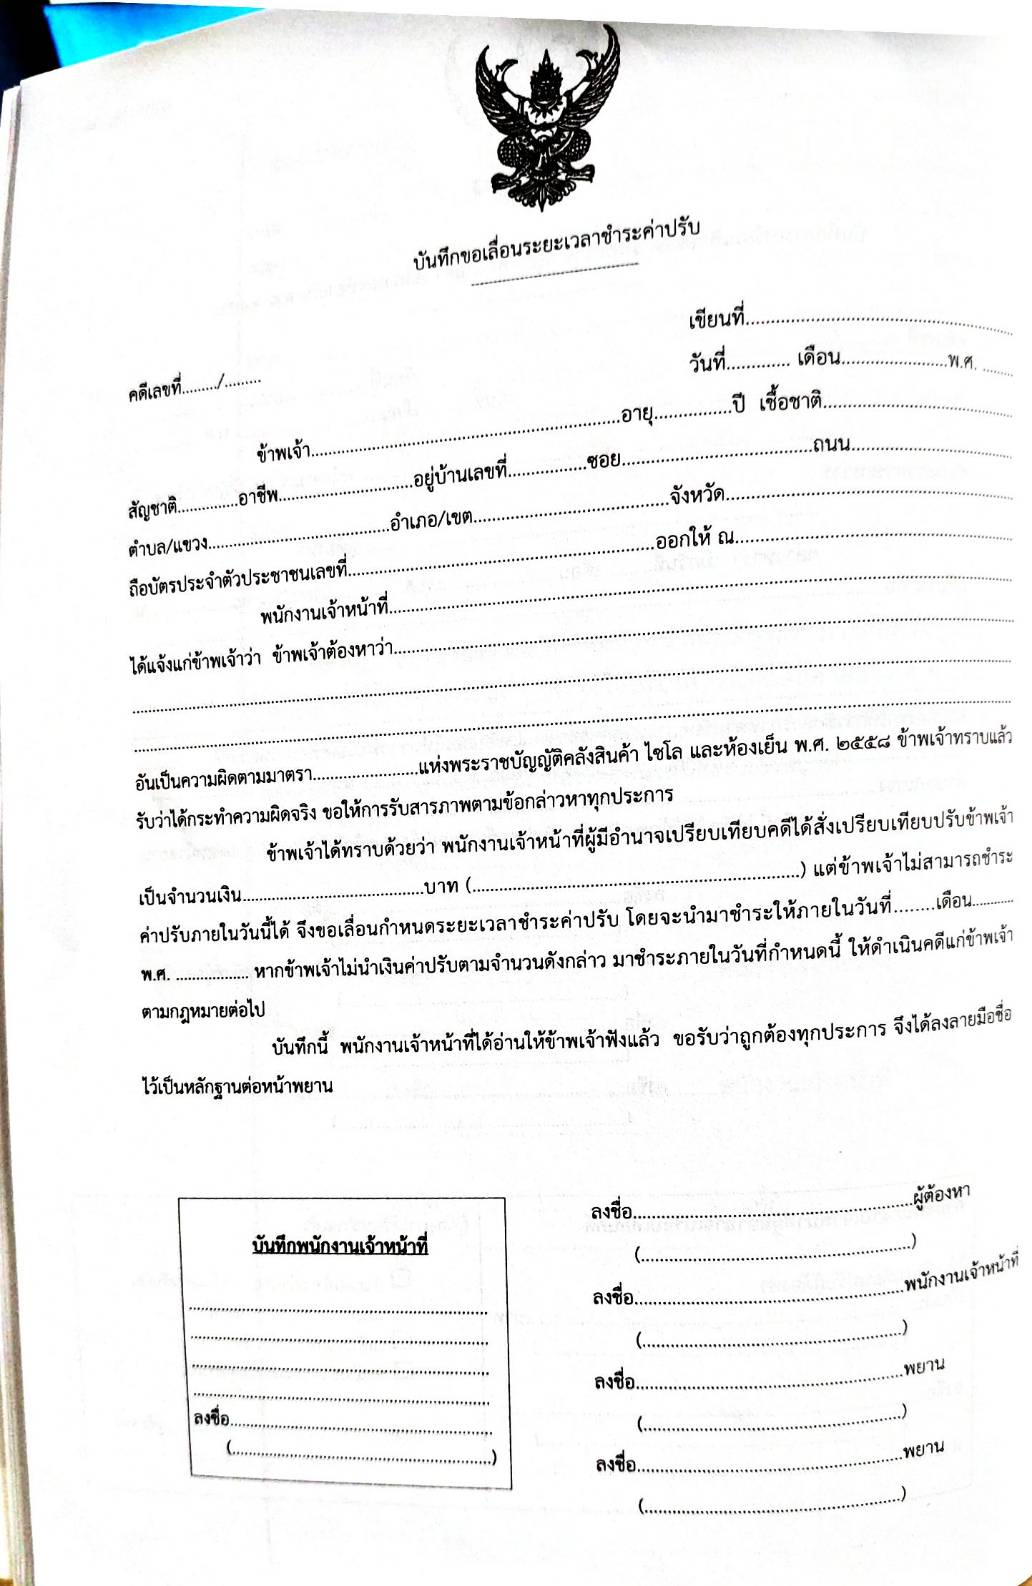 บันทึกขอเลื่อนระยะเวลาชำระค่าปรับ
เขียนที่..............................................
คดีเลขที่........./.........
วันที่............. เดือน......................พ.ศ. .......
ข้าพเจ้า..............................................................อายุ................ปี เชื้อชาติ......................................
สัญชาติ...............อาชีพ...........................อยู่บ้านเลขที่................ซอย......................................ถนน................................
ตำบล/แขวง.....................................อำเภอ/เขต.......................................จังหวัด.........................................................
ถือบัตรประจำตัวประชาชนเลขที่.............................................................ออกให้ ณ.......................................................
พนักงานเจ้าหน้าที่.............................................................................................................................
ได้แจ้งแก่ข้าพเจ้าว่า ข้าพเจ้าต้องหาว่า............................................................................................................................
.................................................................................................................................................................................
.................................................................................................................................................................................
อันเป็นความผิดตามมาตรา........................แห่งพระราชบัญญัติคลังสินค้า ไซโล และห้องเย็น พ.ศ. ๒๕๕๘ ข้าพเจ้าทราบแล้ว
รับว่าได้กระทำความผิดจริง ขอให้การรับสารภาพตามข้อกล่าวหาทุกประการ
ข้าพเจ้าได้ทราบด้วยว่า พนักงานเจ้าหน้าที่ผู้มีอำนาจเปรียบเทียบคดีได้สั่งเปรียบเทียบปรับข้าพเจ้า
เป็นจำนวนเงิน.....................................บาท (..................................................................) แต่ข้าพเจ้าไม่สามารถชำระ
ค่าปรับภายในวันนี้ได้ จึงขอเลื่อนกำหนดระยะเวลาชำระค่าปรับ โดยจะนำมาชำระให้ภายในวันที่........เดือน...........
พ.ศ. .................. หากข้าพเจ้าไม่นำเงินค่าปรับตามจำนวนดังกล่าว มาชำระภายในวันที่กำหนดนี้ ให้ดำเนินคดีแก่ข้าพเจ้า
ตามกฎหมายต่อไป
บันทึกนี้ พนักงานเจ้าหน้าที่ได้อ่านให้ข้าพเจ้าฟังแล้ว ขอรับว่าถูกต้องทุกประการ จึงได้ลงลายมือชื่อ
ไว้เป็นหลักฐานต่อหน้าพยาน
ลงชื่อ.......................................................ผู้ต้องหา
(.......................................................)
ลงชื่อ.......................................................พนักงานเจ้าหน้าที่
(.......................................................)
ลงชื่อ.......................................................พยาน
(.......................................................)
ลงชื่อ.......................................................พยาน
(.......................................................)
บันทึกพนักงานเจ้าหน้าที่
.................................................................
.................................................................
.................................................................
.................................................................
ลงชื่อ.........................................................
(.........................................................)